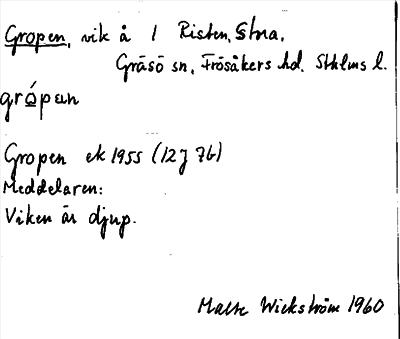 Gropen, vik å 1 Risten, Stora.
Gräsö sn, Frösåkers hd. Sthlms l.
grópan
Gropen ek 1955 (12J 7b)
Meddelaren:
Viken är djup.
Malte Wickström 1960